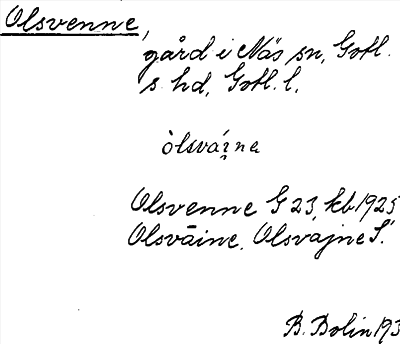 Olsvenne,
gård i Näs sn, Gotl.
s. hd, Gotl. l.
òlsvái̯na
Olsvenne G 23, kb 1925
Olsväine, Olsvajne S.
B. Bolin 193